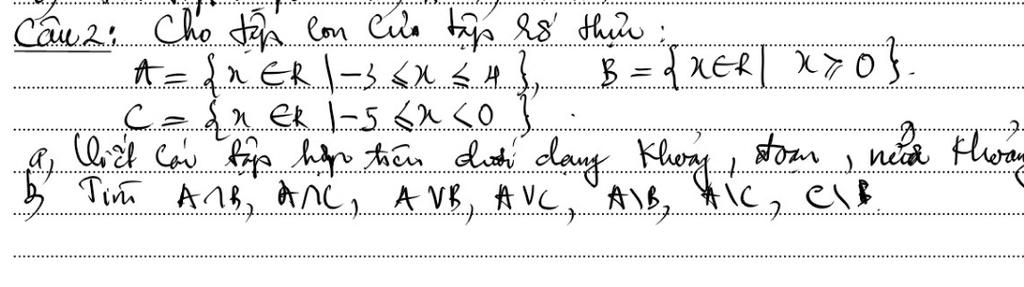 Câu 2: Cho tập con của tập số thực:
A = { x ∈ R | -3 ≤ x ≤ 4 }, B = { x ∈ R | x ≥ 0 }.
C = { x ∈ R | -5 ≤ x < 0 }.
a, Viết các tập hợp trên dưới dạng khoảng, đoạn, nửa khoảng
b, Tìm A∩B, A∩C, A∪B, A∪C, A\B, A\C, C\B.